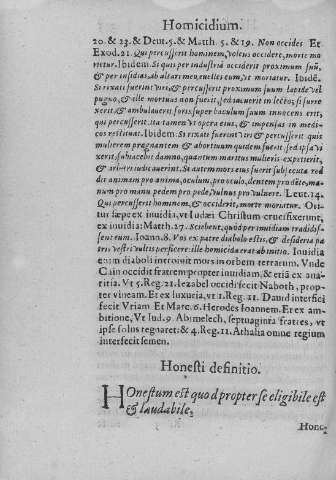 Homicidium.
20. & 23. & Deut. 5. & Matth. 5. & 19. Non occides Et
Exod. 21. Qui percusserit hominem, volens occidere, morte mo
rietur. Ibidem. Si quis per industriã occiderit proximum suũ,
& per insidias, ab altari meo euelles eum, vt moriatur. Ibidẽ.
Si rixati fuerint viri, & percusserit proximum suum lapide vel
pugno, & ille mortuus non fuerit, sed iacuerit in lecto, si surre
xerit, & ambulauerit foris super baculum suum innocens erit,
qui percusserit, ita tamen vt opera eius, & impensas in medi-
cos restituat. Ibidem. Si rixati fuerint viri & percusserit quis
mulierem pregnantem & abortium quidem fuerit sed ipsa vi
xerit, subiacebit damno, quantum maritus mulieris expetierit,
& arbitri iudicauerint. Si autem mors eius fuerit subsecuta red
dit animam pro anima, oculum, pro oculo, dentem pro dẽte, ma-
num pro manu pedem pro pede, vulnus pro vulnere. Leuit. 24.
Qui percusserit hominem, & occiderit, morte moriatur. Ori-
tur sæpe ex inuidia, vt Iudæi Christum crucifixerunt,
ex inuidia: Matth. 27. Sciebant, quòd per inuidiam tradidis-
sent eum. Ioann. 8. Vos ex patre diabolo estis, & desideria pa
tris vestri vultis perficere: ille homicida erat ab initio. Inuidia
enim diaboli introiuit mors in orbem terrarum. Vnde
Cain occidit fratrem propter inuidiam, & etiã ex aua-
ritia. Vt 3. Reg. 21. Iezabel occidi fecit Naboth, prop-
ter vineam. Et ex luxuria, vt 2. Reg. 11. Dauid interfici
fecit Vriam. Et Marc. 6. Herodes Ioannem. Et ex am-
bitione, Vt Iud. 9. Abimelech, septuaginta fratres, vt
ipse solus regnaret: & 4. Reg. 11. Athalia omne regium
interfecit semen.
Honesti definitio.
HOnestum est quod propter se eligibile est
& laudabile.
Hone-